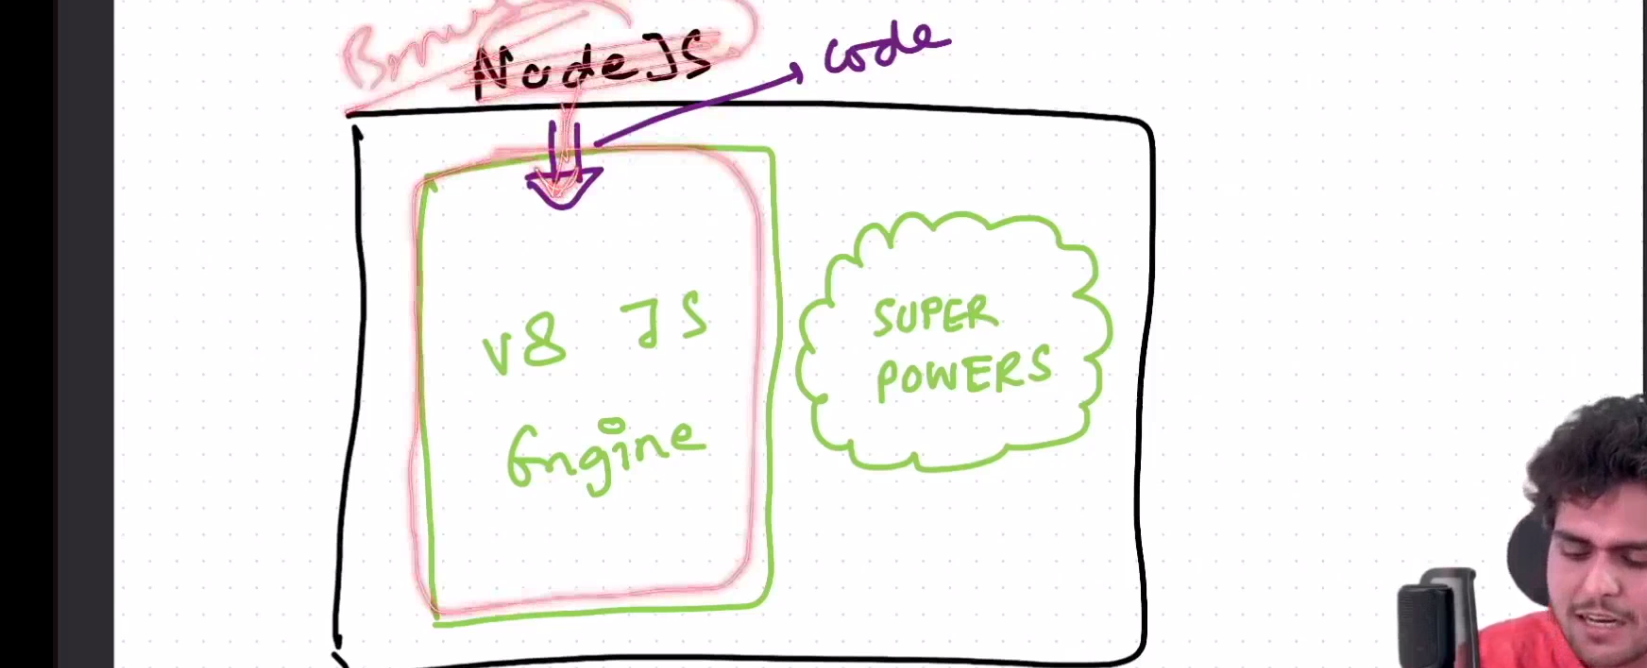 NodeJS
code
V8 JS
Engine
SUPER
POWERS